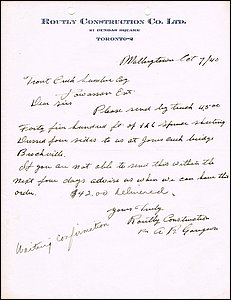 ROUTLY CONSTRUCTION CO. LTD.
21 DUNDAS SQUARE
TORONTO-2
Mallorytown Oct 7/40
Lumber Coy
Ont.
Dear Sirs
Please send by truck 4500
Forty five hundred ft of 1x6 spruce sheeting
Dressed four sides to us at Jones creek bridge
Brockville.
If you are not able to send this within the
next four days advise us when we can have this
order. $42.00 Delivered.
Yours Truly.
Routly Construction
Per A R
Waiting confirmation